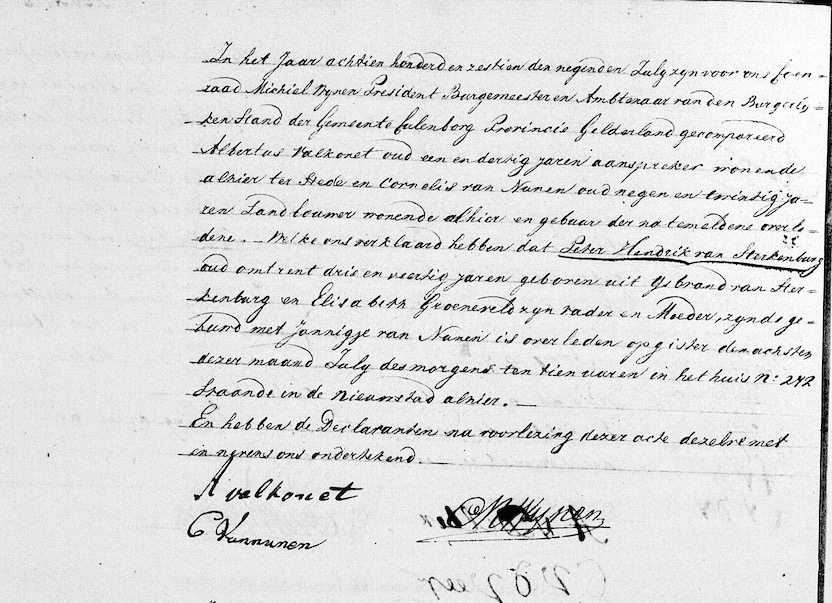 In het Jaar achtien honderd en zestien den negenden July zyn voor ons Coen-
raad Michiel Nynen President Burgemeester en Ambtenaar van den Burgerly-
ken Stand der Gemeente Culenborg Provincie Gelderland gecompareerd
Albertus Valkonet oud een en dertig jaren aanspreker wonende
alhier ter Stede en Cornelis van Nunen oud negen en twintig ja-
ren Landbouwer wonende alhier en gebuur der na temeldene overle-
dene. — Welke ons verklaard hebben dat Peter Hendrik van Sterkenburg
oud omtrent drie en veertig jaren geboren uit Gsbrand van Ster-
kenburg en Elisabeth Groeneveld zyn vader en Moeder, zynde ge-
huwd met Jannigje van Nunen is overleden op gister den achsten
dezer maand July des morgens ten tien uuren in het huis N: 242
staande in de Nieuwstad alhier. —
En hebben de Declaranten na voorlezing dezer acte dezelve met
en nevens ons ondertekend. —
A valkonet
C Vannunen
CM Nynen